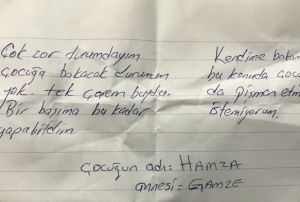 Çok zor durumdayım
çocuğa bakacak durumum
yok. tek çarem buydu.
Bir başıma bu kadar
yapabildim
Kendime bakam
bu konuda çocu
da pişman etm
istemiyorum.
Çocuğun adı: HAMZA
annesi = GAMZE